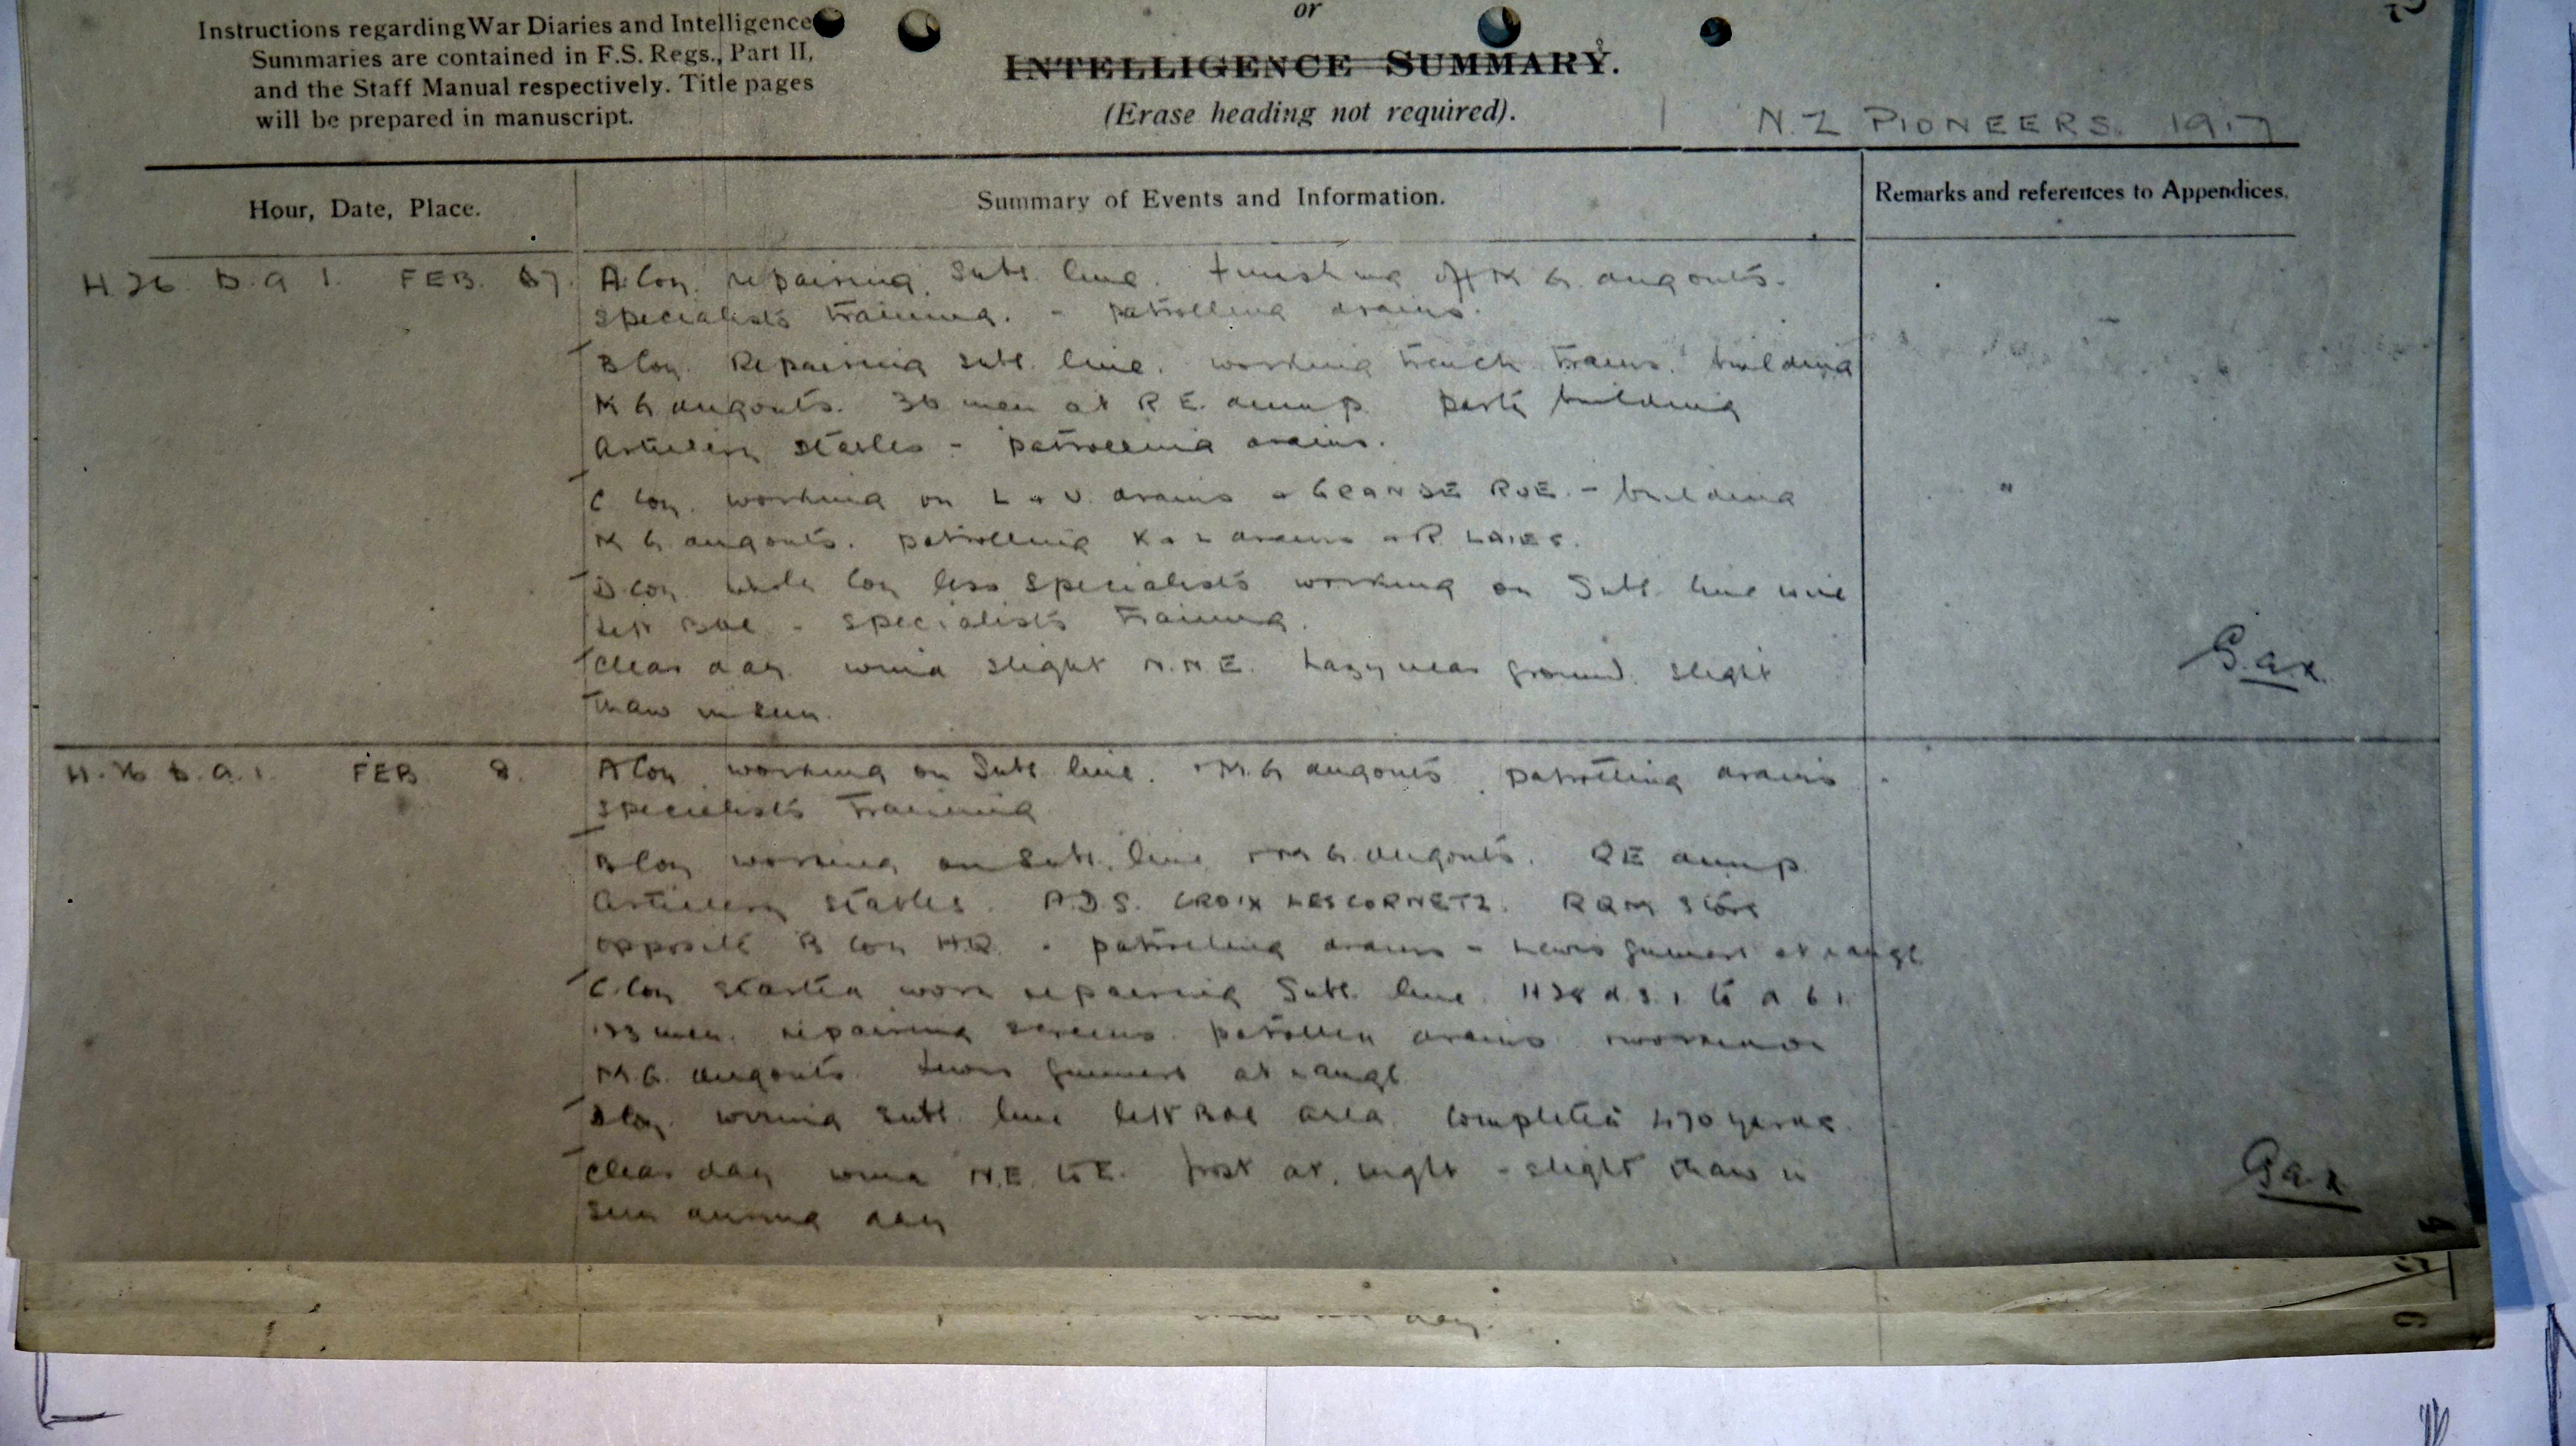 or
Instructions regarding War Diaries and Intelligence
Summaries are contained in F.S. Regs., Part II,
and the Staff Manual respectively. Title pages
will be prepared in manuscript.
INTELLIGENCE SUMMARY.
(Erase heading not required).
N.Z PIONEERS. 1917
Hour, Date, Place.
Summary of Events and Information.
Remarks and references to Appendices.
H.26. b.9.1. FEB. 7.
A Coy. repairing Subs. line. finishing off M G. dugouts.
specialists training. - patrolling drains.
B Coy. Repairing subs. line. working trench trams. building
M G dugouts. 30 men at R E. dump. party building
Artillery stables - patrolling drains.
C Coy. working on L & U. drains & GRANDE RUE. - building
M G dugouts. patrolling K & L drains & R. LAIES.
D Coy. whole Coy less specialists working on Subs. line wire
left Bde - specialists training.
clear day wind slight N.N.E. hazy near ground. slight
thaw in sun.
G.a.x.
H.26 b.9.1. FEB 8.
A Coy working on Subs. line. & M.G dugouts patrolling drains
specialists training
B Coy working on Subs. line & M G. dugouts. RE dump.
Artillery stables. A.D.S. CROIX LESCORNETZ. RQM store
opposite B Coy HQ. - patrolling drains - Lewis gunners at range
C. Coy started work repairing Subs. line. H28 d.3.1 to d 6 1.
men. repairing screens. patrolled drains
M.G. dugouts. Lewis gunners at range
D Coy. wiring subs. line left Bde area completed 470 yards.
clear day wind N.E. to E. frost at night - slight thaw in
sun during day
day.